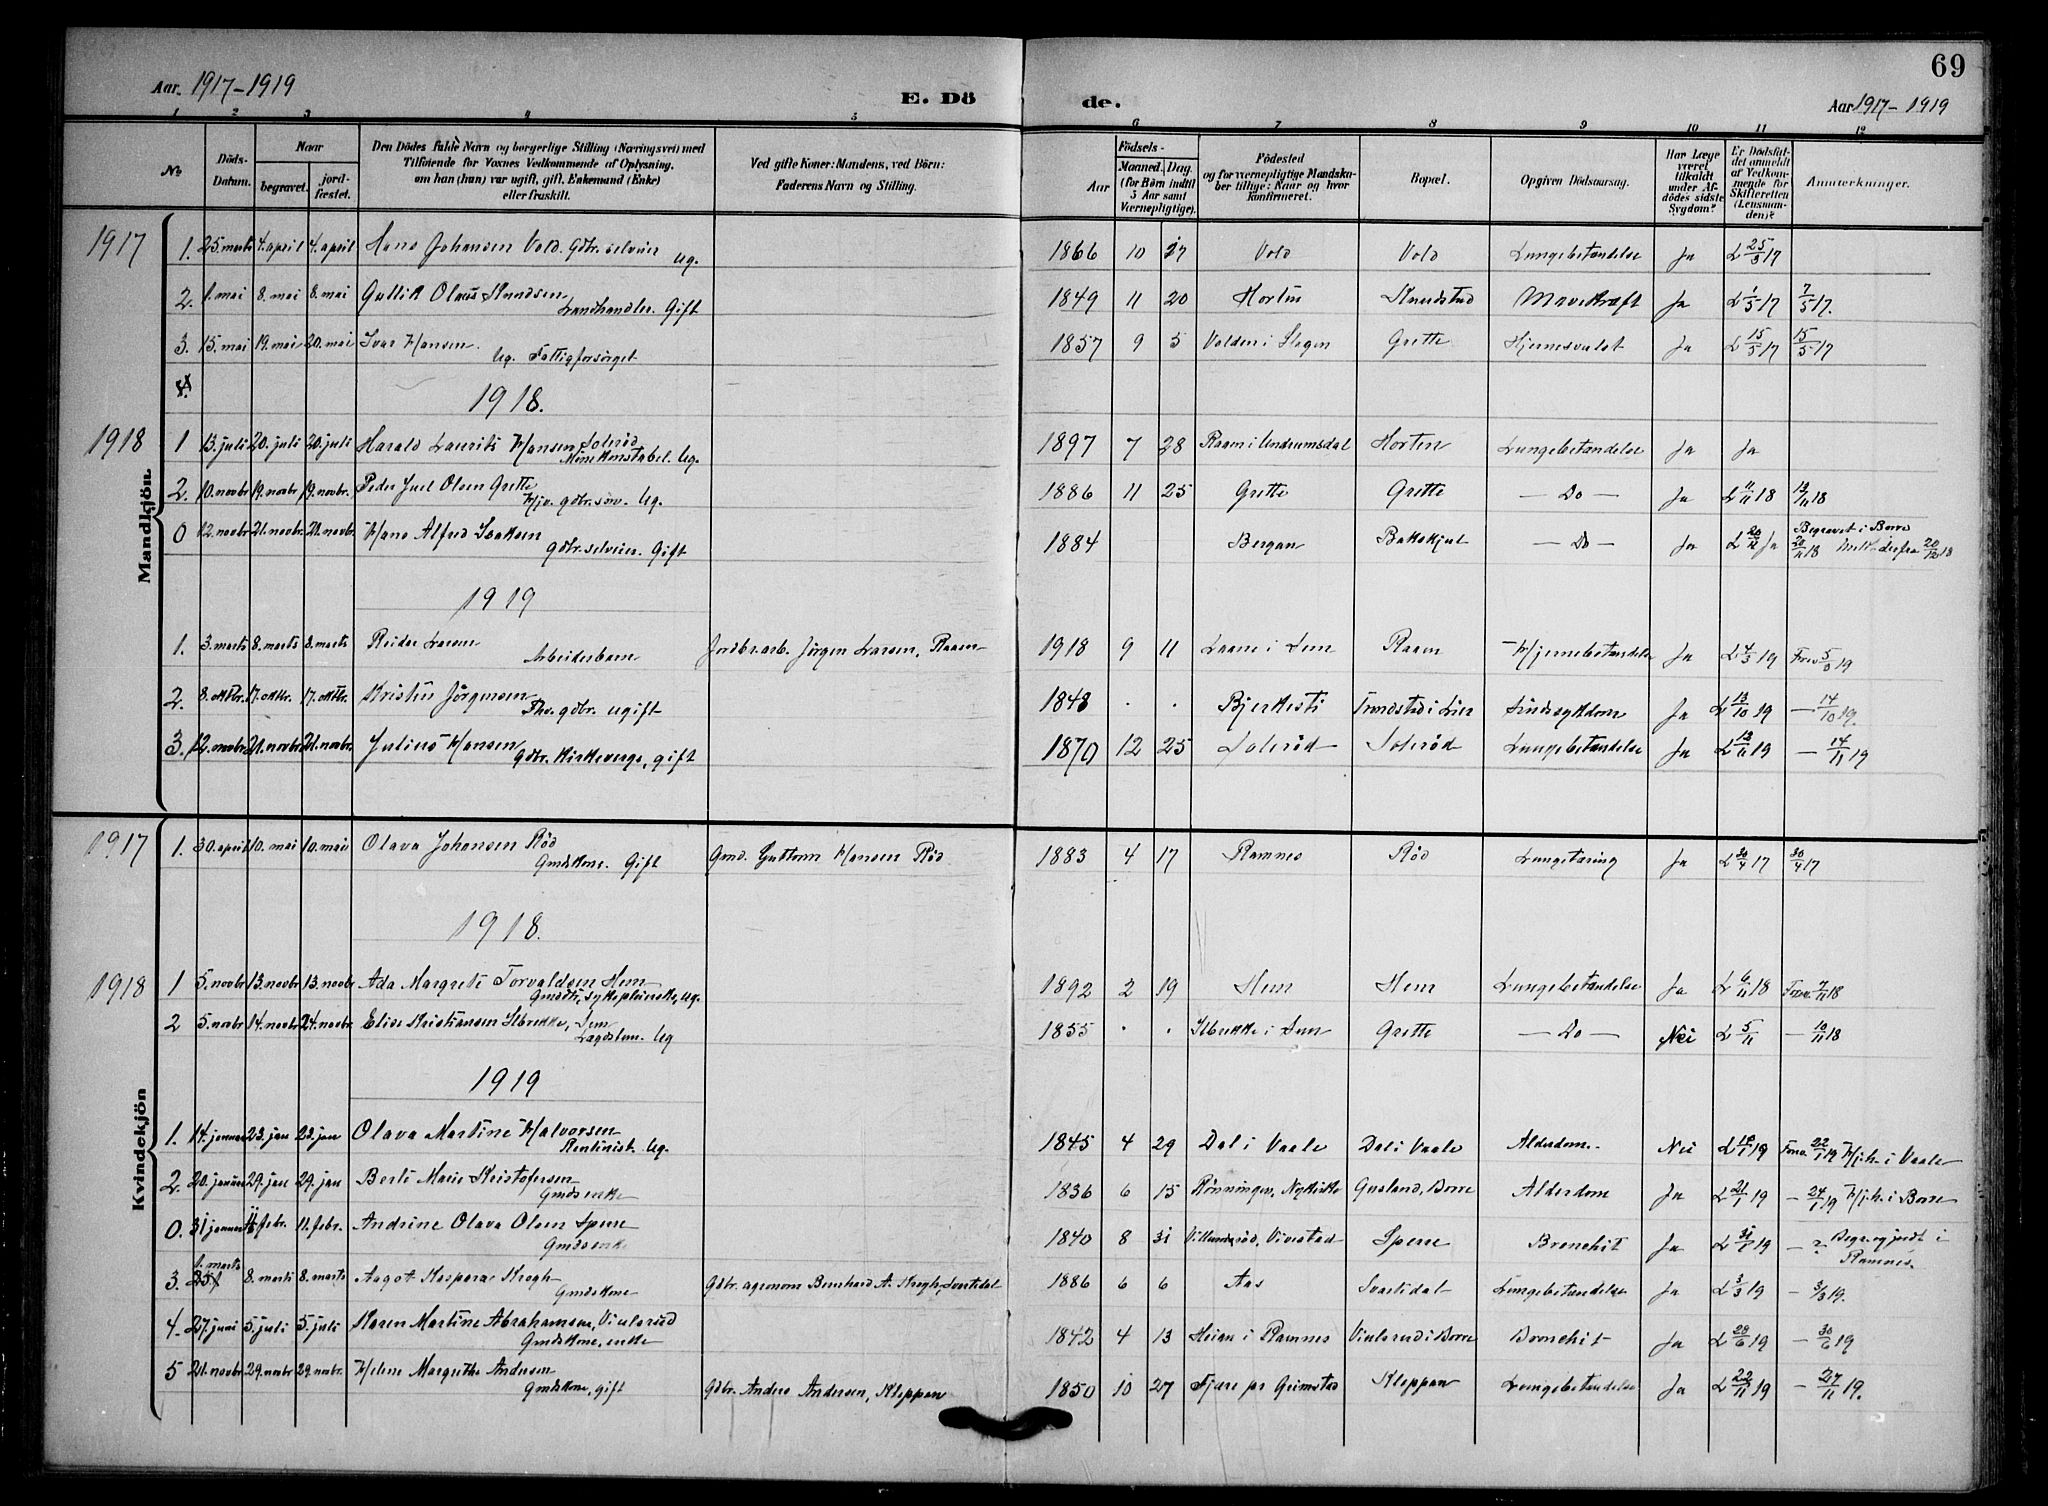 69
Aar. 1917-1919
E. Dö
de.
Aar 1917-1919
1 2 3 4 5 6 7 8 9 10 11 12
No
Döds-
Datum.
Naar
begravet.
jord-
fæstet.
Den Dödes fulde Navn og borgerlige Stilling (Næringsvei) med
Tilföiende for Voxnes Vedkommende af Oplysning,
om han (hun) var ugift, gift, Enkemand (Enke)
eller fraskilt.
Ved gifte Koner: Mandens, ved Börn:
Faderens Navn og Stilling.
Födsels-
Aar
Maaned. Dag.
(for Børn indtil
5 Aar samt
Værnepligtige).
Födested
og for værnepligtige Mandska-
ber tillige: Naar og hvor
konfirmeret.
Bopæl.
Opgiven Dödsaarsag.
Har Læge
været
tilkaldt
under Af-
dödes sidste
Sygdom?
Er Dödsfal-
det anmeldt
af Vedkom-
mende for
Skifteretten
(Lensman-
den)?
Anmærkninger.
Mandkjön
1917
1. 25. marts 4. april 4. april Hans Johansen Vold. Gdbr. selveier Ug. 1866 10 27 Vold Vold Lungebetændelse Ja L 25/3 17
2. 1. mai 8. mai 8. mai Gullik Olaus Knudsen Landhandler. Gift 1849 11 20 Horten Knudstad Mavekræft Ja L 1/5 17 7/5 17.
3. 15. mai 19. mai 20. mai Ivar Hansen. Ug. Fattigforsørget 1857 9 5 Volden i Slagen Grette Hjerneslag Ja L 15/5 17 15/5 17
4.
1918.
1918
1 13. juli 20. juli 20. juli Harald Laurits Hansen Solerød Minekonstabel. Ug. 1897 7 28 Raaen i Undrumsdal Horten Lungebetændelse Ja Ja
2. 10. novbr 19. novbr 19. novbr. Peder Juel Olsen Grette Hjv. gdbr. søn. Ug. 1886 11 25 Grette Grette — Do — Ja L 11/11 18 12/11 18
0 12. novbr 21. novbr. 21. novbr. Hans Alfred Isaksen Gdbr. selveier. Gift 1884 Bergan Bakskjul — Do — Ja L 20/11 Ja Begravet i Borre 20/11 18 Meld. derfra 20/12 18
1919
1. 3. marts 8. marts 8. marts Reidar Larsen Arbeiderbarn Jordbr. arb. Jörgen Larsen, Raaen 1918 9 11 Laane i Sem Raaen Hjernebetændelse Ja L 4/3 19 Frem 5/3 19
2. 8. oktbr. 17. oktbr. 17. oktbr. Kristen Jörgensen Fhv. gdbr. ugift 1848 . . Bjerkesti Trondstad i Lier Sindssykdom Ja L 13/10 19 — 14/10 19.
3. 12. novbr. 21. novbr. 21. novbr. Julius Hansen Gdbr. Kirkeverge, gift 1870 12 25 Solerød Solerød Lungebetændelse Ja L 13/11 19 — 14/11 19
Kvindekjön
1917
1. 30. april 10. mai 10. mai Olava Johansen Rød Gmdskone. Gift Gmd. Guttorm Hansen Rød 1883 4 17 Ramnes Rød Lungetæring Ja L 30/4 17 30/4 17
1918.
1918
1 5. novbr 13. novbr 13. novbr Ada Margrete Torvaldsen Hem Gmdsdt. sykepleierske, Ug. 1892 2 19 Hem Hem Lungebetændelse Ja L 6/11 18 Frem. 7/11 18
2 5. novbr 14. novbr 24. novbr Elise Kristiansen Ilbrekke, Sem Lægdslem. Ug 1855 . . Ilbrekke i Sem Grette — Do — Nei L 5/11 — 10/11 18
1919
1. 14. januar 23. jan 23. jan Olava Martine Halvorsen Rentenist. Ug. 1845 4 29 Dal i Vaale Dal i Vaale Alderdom. Nei L 18/1 19 Frem 22/1 19 Hjh. i Vaale
2. 20. januar 29. jan 29. jan Berte Marie Kristofersen Gmdsenke 1836 6 15 Rønningen, Nykirke Gusland, Borre Alderdom Ja L 21/1 19 — 24/1 19 Hjh. i Borre
0. 31 januar 11 febr. 11. febr. Andrine Olava Olsen Sperre Gmdsenke 1840 8 31 Vivestad Sperre Bronchit Ja L 31/1 19 — 2 Begr. og jordf. i Ramnes.
3. 1. marts 8. marts 8. marts Aagot Kaspara Krogh Gmdskone Gdbr. agronom Bernhard A. Krogh, Svartedal 1886 6 6 Aas Svartedal Lungebetændelse Ja L 3/3 19 — 3/3 19.
4. 27. juni 5. juli 5. juli Karen Martine Abrahamsen, Vinlerød Gmdskone, enke 1842 4 13 Heian i Ramnes Vinlerød i Borre Bronchit Ja L 28/6 19 — 30/6 19
5 21. novbr 29. novbr 29. novbr. Helene Margrethe Andersen Gmdskone, gift Gdbr. Anders Andersen, Kleppan 1850 10 27 Fjære pr Grimstad Kleppan Lungebetændelse Ja L 22/11 19 — 27/11 19.